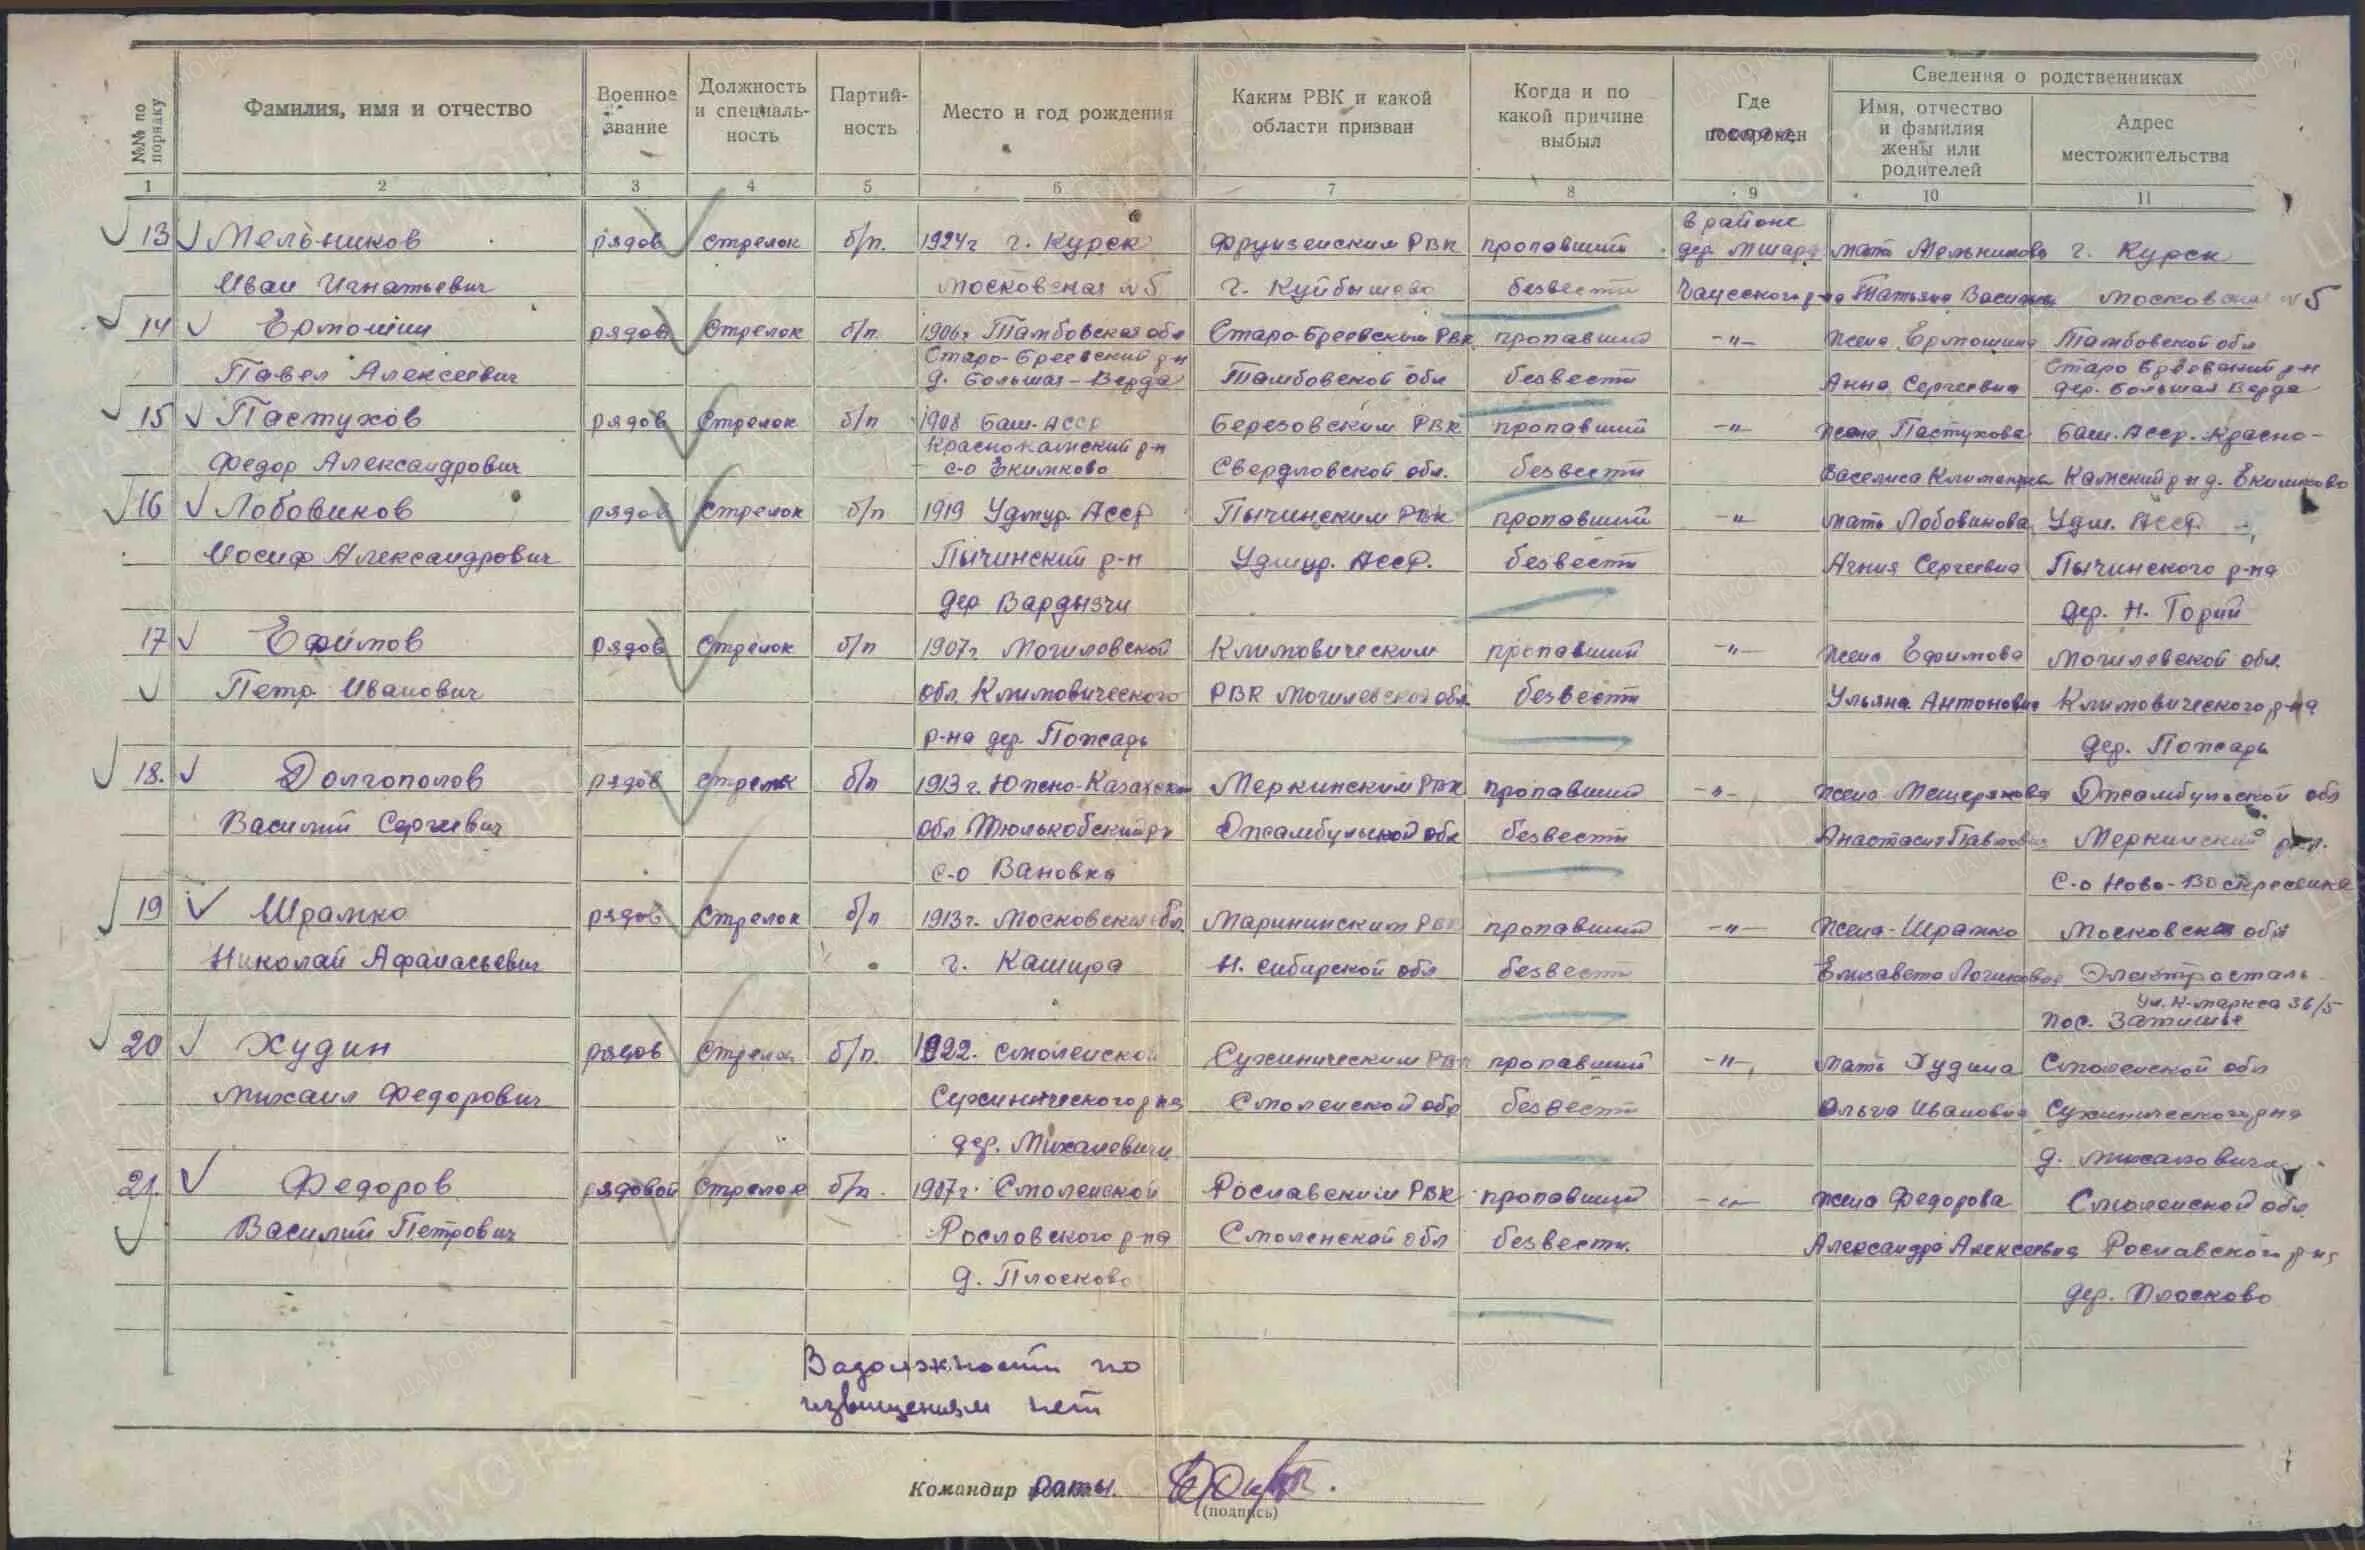 №№ по порядку
Фамилия, имя и отчество
Военное звание
Должность и специальность
Партий-
ность
Место и год рождения
Каким РВК и какой
области призван
Когда и по
какой причине
выбыл
Где
Сведения о родственниках
Имя, отчество
и фамилия
жены или
родителей
Адрес
местожительства
1 2 3 4 5 6 7 8 9 10 11
в районе
13 Мельников рядов стрелок б/п. 1924 г г. Курск Фрунзенским РВК пропавший дер. Мшара мать Мельникова г. Курск
Иван Игнатьевич Московская №5 г. Куйбышева безвести Чаусского р-на Татьяна Московская №5
14 Ермошин рядов Стрелок б/п 1906г Тамбовская обл Старо-Бреевским РВК пропавший -"- жена Ермошина Тамбовской обл
Старо-Бреевский р-н Старо Бреевский р-н
Павел Алексеевич д. Большая-Верда Тамбовской обл безвести Анна Сергеевна дер. Большая Верда
15 Пастухов рядов Стрелок б/п 1908 Баш. АССР Березовским РВК пропавший -"- жена Пастухова Баш. Асср. Красно-
Краснокамский р-н
Федор Александрович с-о Екимково Свердловской обл. безвести Василиса Камский р-н д. Екимково
16 Лобовиков рядов Стрелок б/п 1919 Удмур. Асср Пычинским РВК пропавший -"- мать Лобовикова Удм. АССР
Иосиф Александрович Пычинский р-н Удмур. АССР. безвести Агния Сергеевна Пычинского р-на
дер Вардызчи дер. Н. Горий
17 Ефимов рядов Стрелок б/п 1907г Могилевской Климовическим пропавший -"- жена Ефимова Могилевской обл.
Петр Иванович обл. Климовического РВК Могилевской обл. безвести Ульяна Антоновна Климовического р-на
р-на дер. Пожарь дер. Пожарь
18. Долгополов рядов стрелок б/п 1913 г. Южно-Казахская Меркинским РВК пропавший -"- жена Мещерякова Джамбульской обл
Василий Сергеевич обл Тюлькобский р-н Джамбульской обл безвести Анастасия Павловна Меркинский р-н.
с-о Вановка с-о Ново-Воскресенка
19 Шрамко рядов Стрелок б/п 1913г. Московская обл. Марининским РВК пропавший -"- жена-Шрамко Московская обл
Николай Афанасьевич г. Кашира Н. Сибирской обл безвести Елизавета Электросталь
ул. К-маркса 36/5
пос. Затишье
20 Худин рядов Стрелок б/п. 1922. Смоленской Сухиническим РВК пропавший -"- мать Худина Смоленской обл
Михаил Федорович Сухинического р-на Смоленской обл безвести Ольга Ивановна Сухинического р-на
дер. Михалевичи д. Михаловичи
21. Федоров рядовой Стрелок б/п. 1907г. Смоленской Рославским РВК пропавший -"- жена Федорова Смоленской обл.
Василий Петрович Рословского р-на Смоленской обл безвести. Александра Алексеевна Рославского р-на
д. Плосково дер. Плосково
Задолжности по
извещениям нет
Командир роты.
(подпись)
ЦАМО РФ